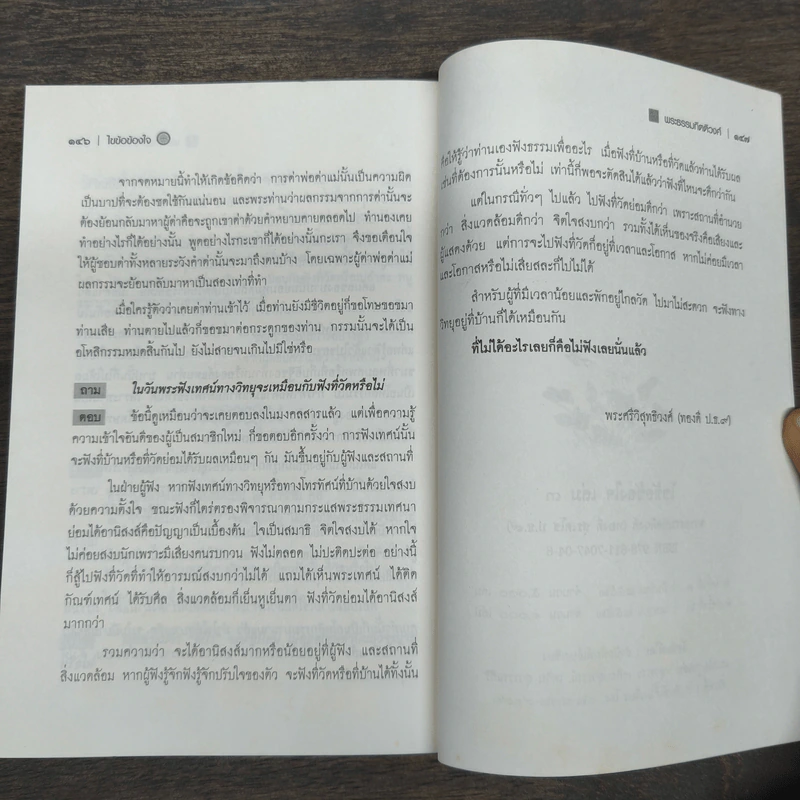 ๑๔๖ | ไขข้อข้องใจ
จากจดหมายนี้ทำให้เกิดข้อคิดว่า การด่าพ่อด่าแม่นั้นเป็นความผิด
เป็นบาปที่จะต้องชดใช้กันแน่นอน และพระท่านว่าผลกรรมจากการด่านั้นจะ
ต้องย้อนกลับมาหาผู้ด่าคือจะถูกเขาด่าด้วยคำหยาบคายตลอดไป ทำนองเคย
ทำอย่างไรก็ได้อย่างนั้น พูดอย่างไรกะเขาก็ได้อย่างนั้นกะเรา จึงขอเตือนใจ
ให้ผู้ชอบด่าทั้งหลายระวังคำด่านั้นจะมาถึงตนบ้าง โดยเฉพาะผู้ด่าพ่อด่าแม่
ผลกรรมจะย้อนกลับมาหาเป็นสองเท่าที่ทำ
เมื่อใครรู้ตัวว่าเคยด่าท่านเข้าไว้ เมื่อท่านยังมีชีวิตอยู่ก็ขอโทษขอขมา
ท่านเสีย ท่านตายไปแล้วก็ขอขมาต่อกระดูกของท่าน กรรมนั้นจะได้เป็น
อโหสิกรรมหมดสิ้นกันไป ยังไม่สายจนเกินไปมิใช่หรือ
ถาม ในวันพระฟังเทศน์ทางวิทยุจะเหมือนกับฟังที่วัดหรือไม่
ตอบ ข้อนี้ดูเหมือนว่าจะเคยตอบลงในมงคลสารแล้ว แต่เพื่อความรู้
ความเข้าใจอันดีของผู้เป็นสมาชิกใหม่ ก็ขอตอบอีกครั้งว่า การฟังเทศน์นั้น
จะฟังที่บ้านหรือที่วัดย่อมได้รับผลเหมือนๆ กัน มันขึ้นอยู่กับผู้ฟังและสถานที่
ในฝ่ายผู้ฟัง หากฟังเทศน์ทางวิทยุหรือทางโทรทัศน์ที่บ้านด้วยใจสงบ
ด้วยความตั้งใจ ขณะฟังก็ไตร่ตรองพิจารณาตามกระแสพระธรรมเทศนา
ย่อมได้อานิสงส์คือปัญญาเป็นเบื้องต้น ใจเป็นสมาธิ จิตใจสงบได้ หากใจ
ไม่ค่อยสงบนักเพราะมีเสียงคนรบกวน ฟังไม่ตลอด ไม่ปะติดปะต่อ อย่างนี้
ก็สู้ไปฟังที่วัดที่ทำให้อารมณ์สงบกว่าไม่ได้ แถมได้เห็นพระเทศน์ ได้ติด
กัณฑ์เทศน์ ได้รับศีล สิ่งแวดล้อมก็เย็นหูเย็นตา ฟังที่วัดย่อมได้อานิสงส์
มากกว่า
รวมความว่า จะได้อานิสงส์มากหรือน้อยอยู่ที่ผู้ฟัง และสถานที่
สิ่งแวดล้อม หากผู้ฟังรู้จักฟังรู้จักปรับใจของตัว จะฟังที่วัดหรือที่บ้านได้ทั้งนั้น
พระธรรมกิตติวงศ์ | ๑๔๗
คือให้รู้ว่าท่านเองฟังธรรมเพื่ออะไร เมื่อฟังที่บ้านหรือที่วัดแล้วท่านได้รับผล
เช่นที่ต้องการนั้นหรือไม่ เท่านี้ก็พอจะตัดสินได้แล้วว่าฟังที่ไหนจะดีกว่ากัน
แต่ในกรณีทั่วๆ ไปแล้ว ไปฟังที่วัดย่อมดีกว่า เพราะสถานที่อำนวย
กว่า สิ่งแวดล้อมดีกว่า จิตใจสงบกว่า รวมทั้งได้เห็นของจริงคือเสียงและ
ผู้แสดงด้วย แต่การจะไปฟังที่วัดก็อยู่ที่เวลาและโอกาส หากไม่ค่อยมีเวลา
และโอกาสหรือไม่เสียสละก็ไปไม่ได้
สำหรับผู้ที่มีเวลาน้อยและพักอยู่ไกลวัด ไปมาไม่สะดวก จะฟังทาง
วิทยุอยู่ที่บ้านก็ได้เหมือนกัน
ที่ไม่ได้อะไรเลยก็คือไม่ฟังเลยนั่นแล้ว
พระศรีวิสุทธิวงศ์ (ทองดี ป.ธ.๙)